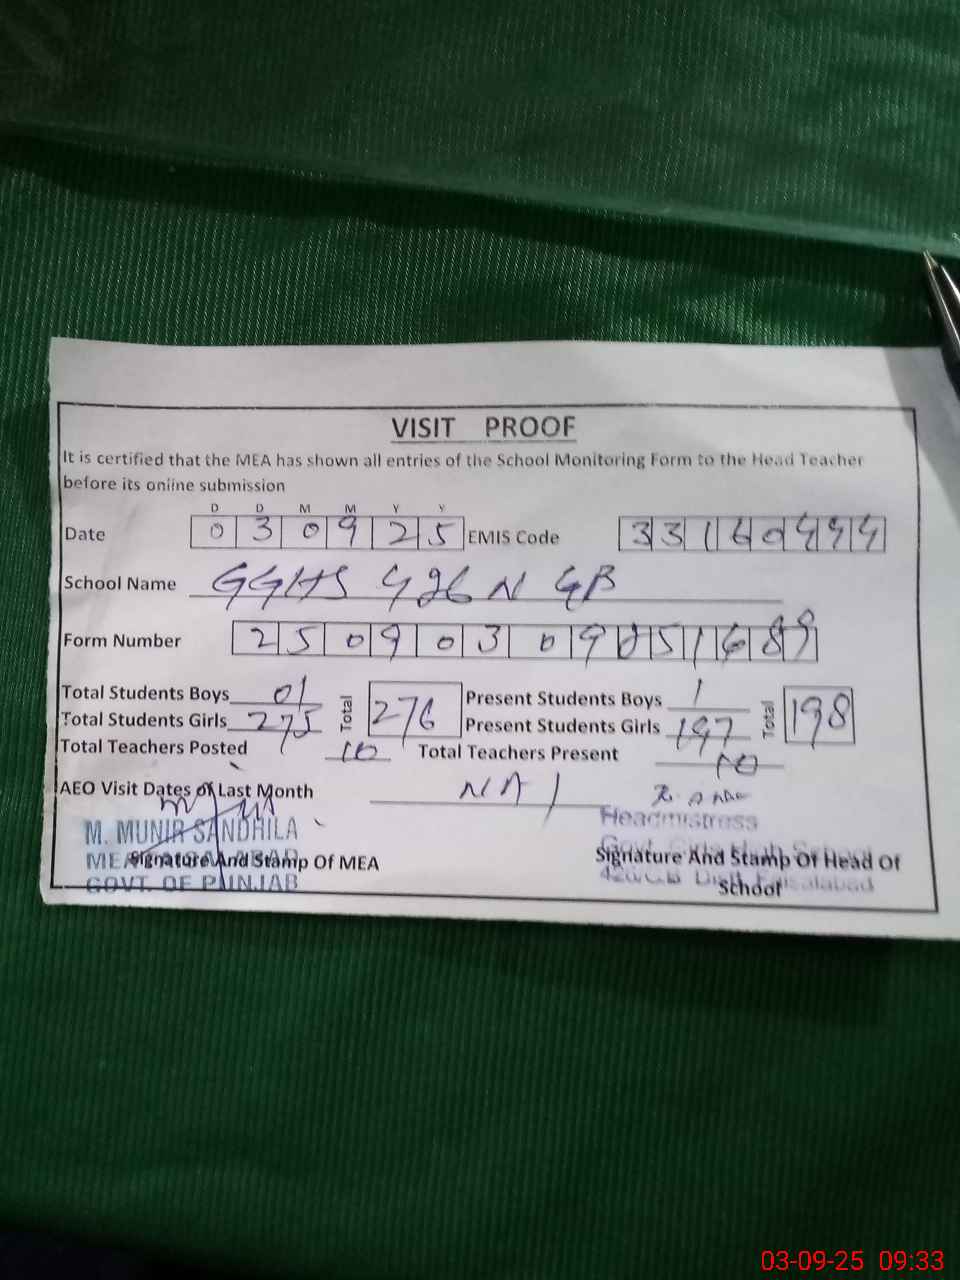 VISIT PROOF
It is certified that the MEA has shown all entries of the School Monitoring Form to the Head Teacher
before its online submission
D D M M Y Y
Date 0 3 0 9 2 5 EMIS Code 3 3 1 6 0 4 4 4
School Name GGHS 426 N GB
Form Number 2 5 0 9 0 3 0 9 2 5 1 6 8 9
Total Students Boys 01 Total 276 Present Students Boys 1 Total 198
Total Students Girls 275 Present Students Girls 197
Total Teachers Posted 10 Total Teachers Present 10
AEO Visit Dates of Last Month NA
M. MUNIR SANDHILA
Headmistress
MEA
Signature And Stamp Of MEA
Signature And Stamp Of Head Of
School
GOVT. OF PUNJAB
426/GB Distt. Faisalabad
03-09-25 09:33